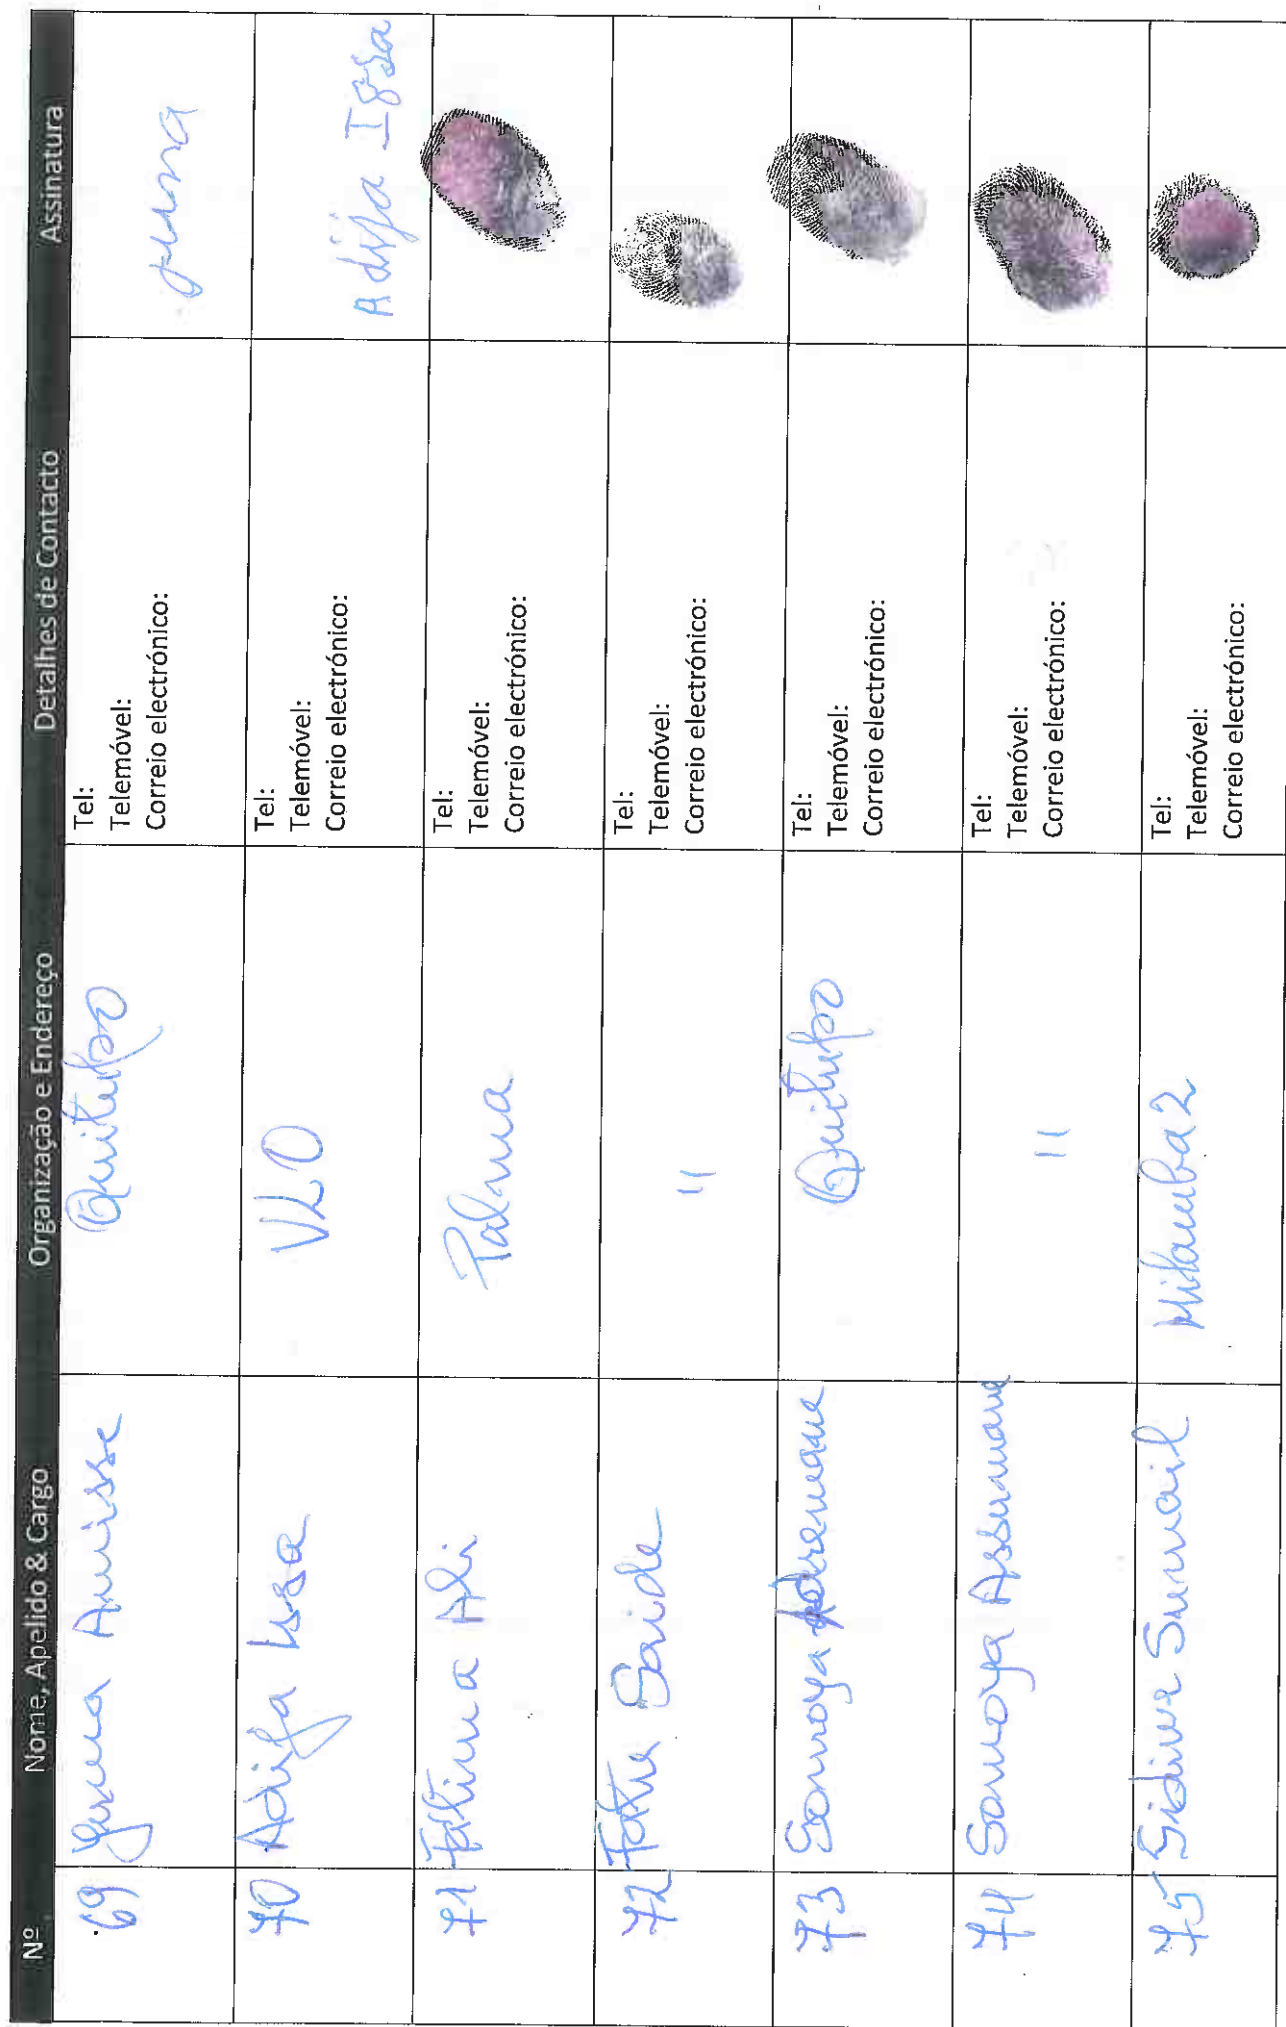 Nº Nome, Apelido & Cargo Organização e Endereço Detalhes de Contacto Assinatura
69 Juma Amisse Quitupo Tel:
Telemóvel:
Correio electrónico:
juma
70 Adija Issa VLO Tel:
Telemóvel:
Correio electrónico:
Adija Igsa
71 Fátima Ali Palma Tel:
Telemóvel:
Correio electrónico:
72 Saide " Tel:
Telemóvel:
Correio electrónico:
73 Somoya Quitupo Tel:
Telemóvel:
Correio electrónico:
74 Samoya Assumane " Tel:
Telemóvel:
Correio electrónico:
75 Sumail 2 Tel:
Telemóvel:
Correio electrónico: